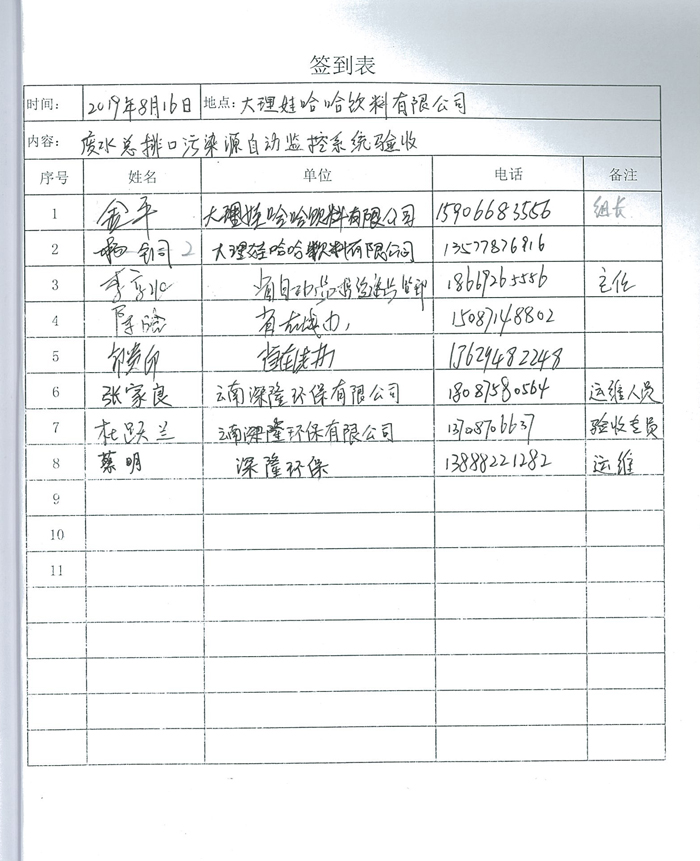 签到表
时间： 2019年8月16日 地点：大理娃哈哈饮料有限公司
内容： 废水总排口污染源自动监控系统验收
序号 姓名 单位 电话 备注
1 金平 大理娃哈哈饮料有限公司 15906683556 组长
2 大理娃哈哈饮料有限公司 13577876916
3 主任
4 省在线办 15087148802
5 省在线办 13629482248
6 张家良 云南深隆环保有限公司 18087580564 运维人员
7 杜跃兰 云南深隆环保有限公司 13708706637 验收专员
8 蔡明 深隆环保 13888221282 运维
9
10
11